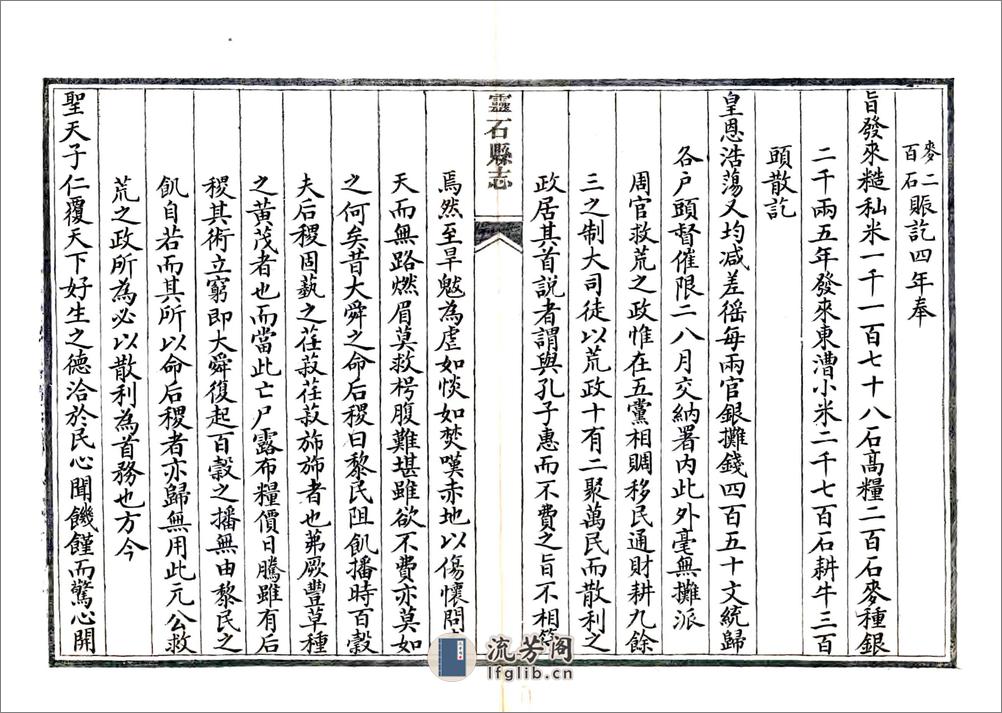 麥二百石賑訖四年奉
旨發來糙秈米一千一百七十八石高糧二百石麥種銀
二千兩五年發來東漕小米二千七百石耕牛三百
頭散訖
皇恩浩蕩又均减差徭每兩官銀攤錢四百五十文統歸
各户頭督催限二八月交納署内此外毫無攤派
周官救荒之政惟在五黨相賙移民通財耕九餘
三之制大司徒以荒政十有二聚萬民而散利之
政居其首説者謂與孔子惠而不費之旨不相符
靈石縣志
焉然至旱魃為虐如惔如焚嘆赤地以傷懷問
天而無路燃眉莫救枵腹難堪雖欲不費亦莫如
之何矣昔大舜之命后稷曰黎民阻飢播時百穀
夫后稷固蓺之荏菽荏菽斾斾者也茀厥豐草種
之黄茂者也而當此亡尸露布糧價日騰雖有后
稷其術立窮即大舜復起百穀之播無由黎民之
飢自若而其所以命后稷者亦歸無用此元公救
荒之政所為必以散利為首務也方今
聖天子仁覆天下好生之德洽於民心聞饑饉而驚心開
流芳阁
lfglib.cn